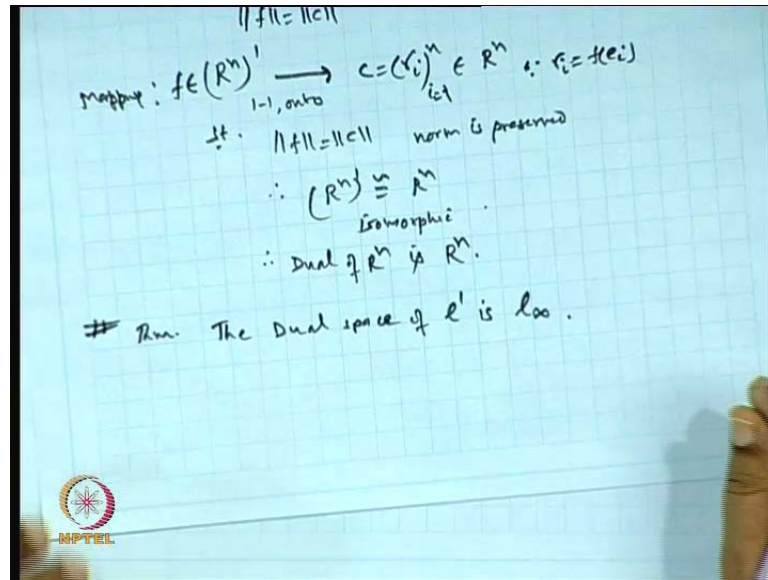 ||f|| = ||c||
Mapping : f ∈ (Rⁿ)' ⟶ c = (rᵢ)ⁿ ∈ Rⁿ ∵ rᵢ = f(eᵢ)
1-1, onto i=1
s.t. ||f|| = ||c|| norm is preserved
∴ (Rⁿ)' ≅ Rⁿ
isomorphic
∴ Dual of Rⁿ is Rⁿ.
# Thm. The Dual space of l' is l∞ .
NPTEL